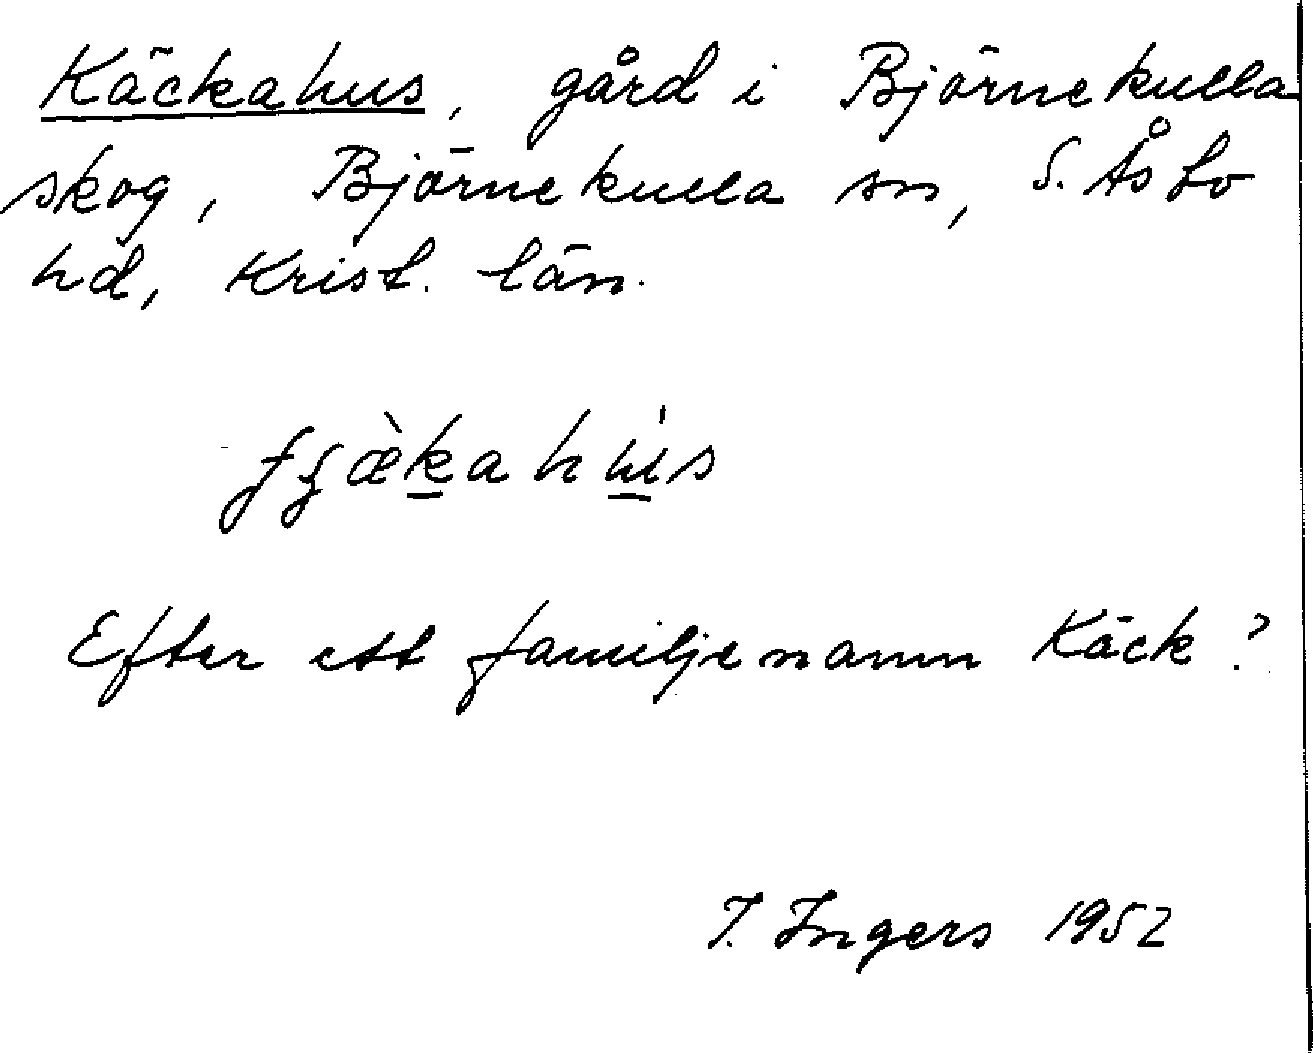 Käckahus, gård i Björnekulla
skog, Björnekulla sn, S. Åsbo
hd, Krist. län.
Efter ett familjenamn Käck?
I. Ingers 1952